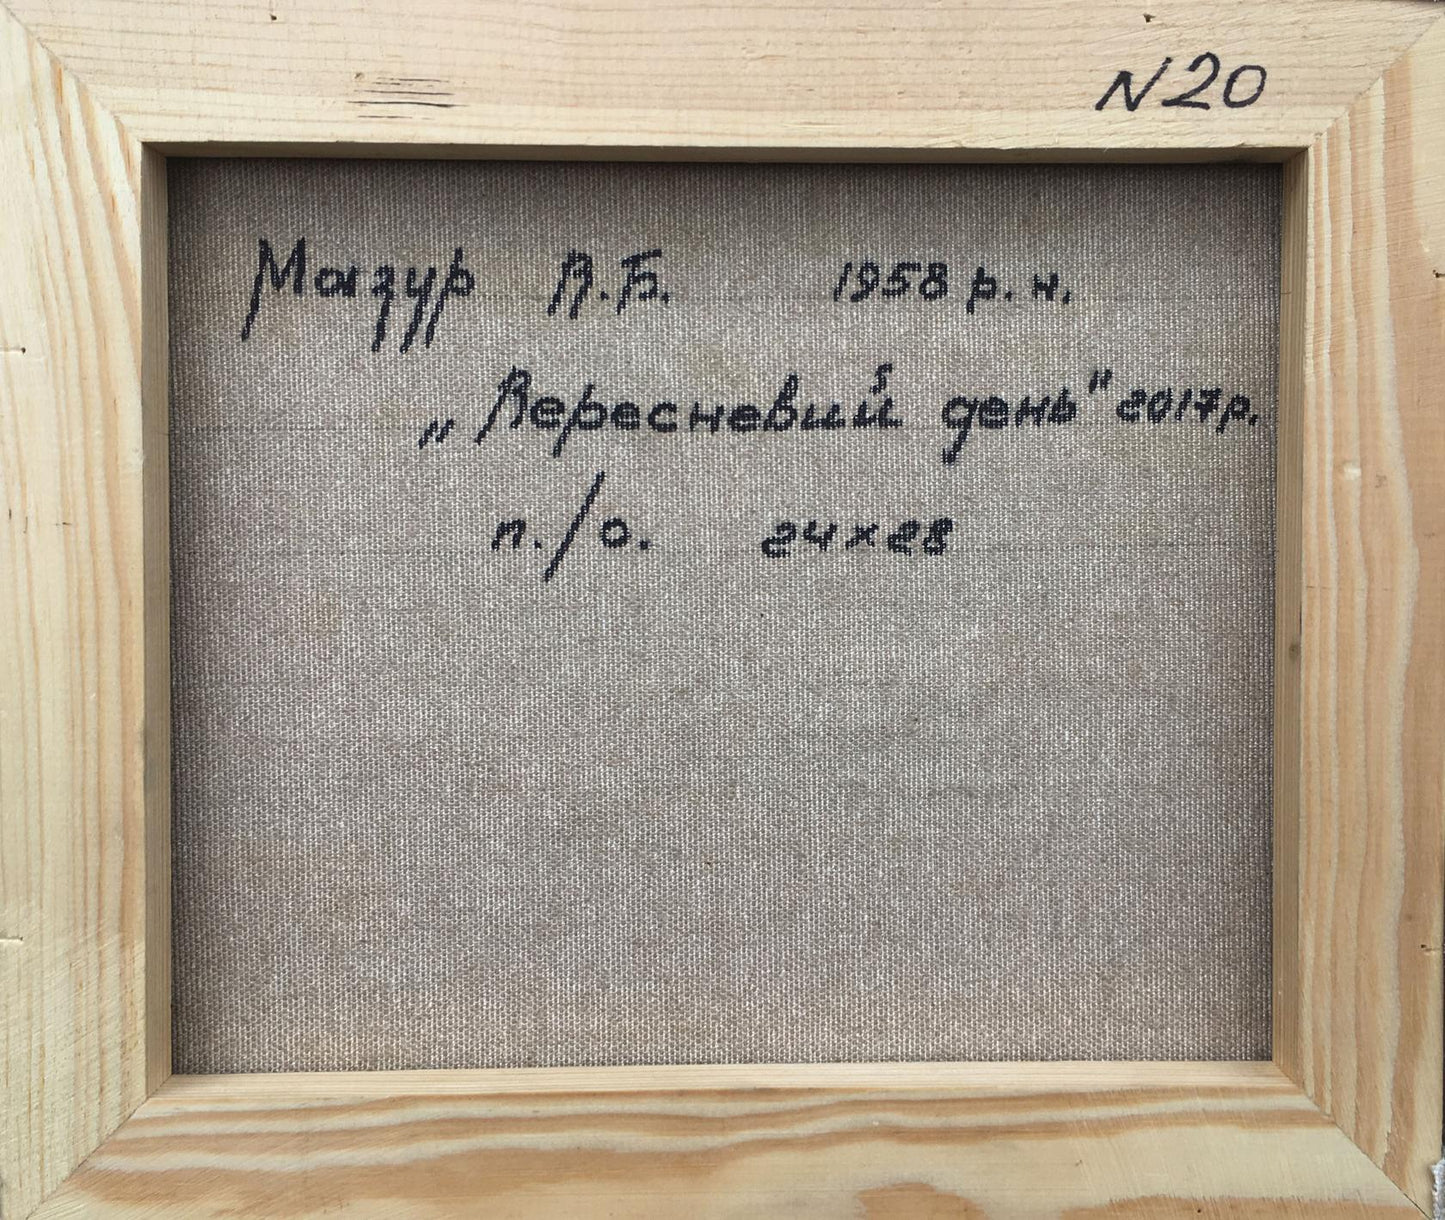 N20
Мазур В.Б. 1958 р.н.
„Вересневий день" 2017р.
п./о. 24х28